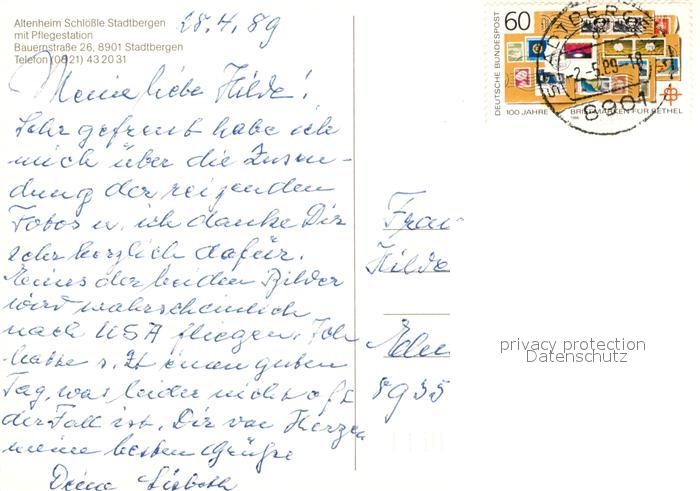 Altenheim Schlößle Stadtbergen
mit Pflegestation
Bauernstraße 26, 8901 Stadtbergen
Telefon (0821) 43 20 31
28.4.89
Meine liebe Hilde!
Sehr gefreut habe ich
mich über die Zusen-
dung der reizenden
Fotos u. ich danke Dir
sehr herzlich dafür.
Eines der beiden Bilder
wird wahrscheinlich
nach USA fliegen. Ich
hatte s. Zt einen guten
Tag, was leider nicht oft
der Fall ist. Dir von Herzen
meine besten Grüße
Deine Lisbeth
60
DEUTSCHE BUNDESPOST
100 JAHRE BRIEFMARKEN FÜR BETHEL
1988
STADTBERGEN
-2.-5.89-18
8901
Frau
Hilde
8935
privacy protection
Datenschutz